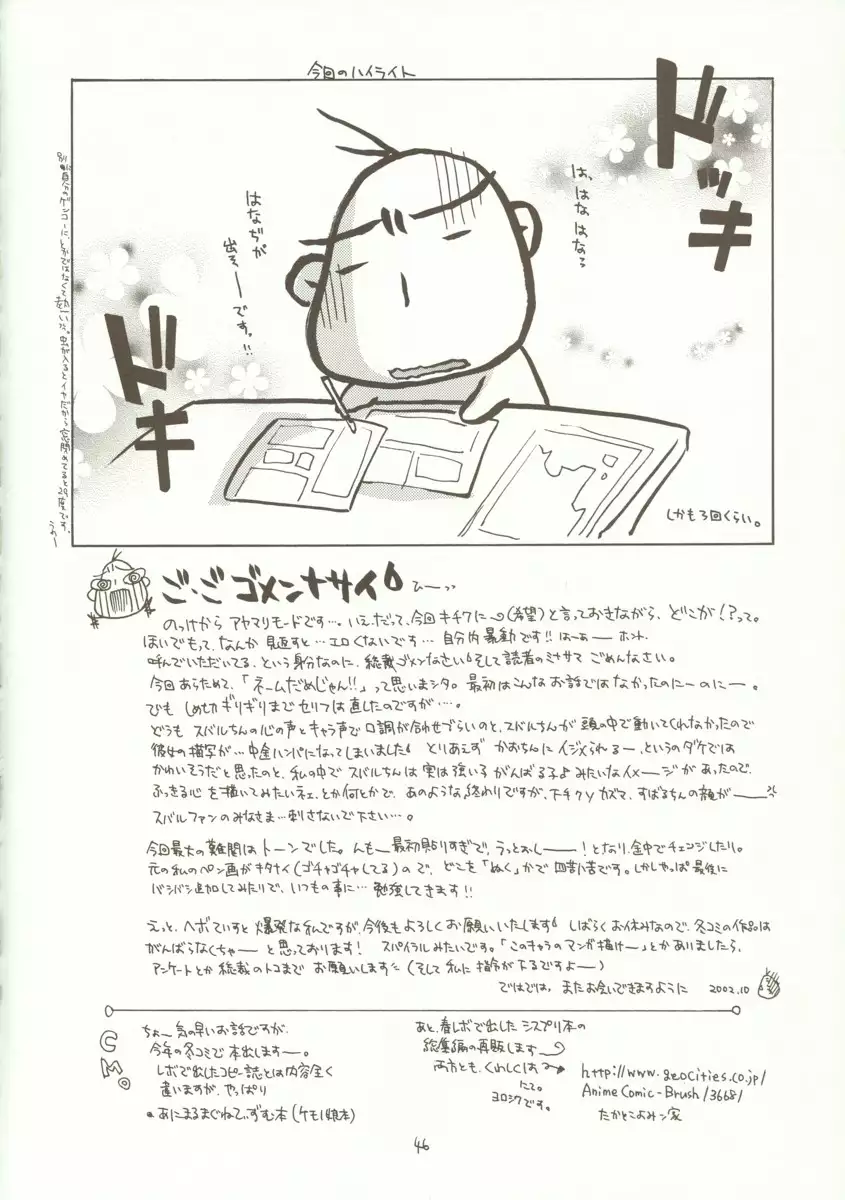 今回のハイライト
ドッキ
は、はな はなっ
はなぢが
出そーです。!!
ドキ
別に自分のゲンコーに、とかではなくて熱いだ。虫が入るとイヤだから窓閉めてると29度です。うわー
しかも3回くらい。
ご・ごゴメンナサイ
ひーっっ
のっけから アヤマリモードです…。いえだって、今回キチクに〜(希望)と言っておきながら、どこが!?って。
ほいでもって、なんか 見返すと…エロくないです… 自分内暴動です!! はーぁー ホント
呼んでいただいてる、という身分なのに、総裁ゴメンなさい そして読者のミナサマ ごめんなさい。
今回あらためて、「ネームだめじゃん!!」って思いまシタ。最初はこんなお話ではなかったのにーのにー。
でも しめ切ギリギリまで セリフは直したのですが…。
どうも スバルちんの心の声とキャラ声で口調が合わせづらいのと、スバルちんが 頭の中で動いてくれなかったので
彼女の描写が…中途ハンパになってしまいました とりあえず かおちんに イジメられるー、というのダケでは
かわいそうだと思ったのと、私の中で スバルちんは 実は強い子 がんばる子♪ みたいなイメージがあったので、
ふっきる心を描いてみたいネェ、とか何とかで、あのような終わりですが、下チクYカズマ、すばるちんの顔がーーっっ
スバルファンのみなさま…刺さないで下さい…。
今回最大の難関はトーンでした。んもー最初貼りすぎで、うっとおしーー!となり、途中でチェンジしたり。
元の私のペン画がキタナイ(ゴチャゴチャしてる)ので、どこを「ぬく」かで四苦八苦です。しかしやっぱ最後に
バシバシ追加してみたりで、いつもの事に… 勉強してきます!!
えっと、ヘボていすと爆発な私ですが、今後もよろしくお願いいたします しばらくお休みなので、冬コミの作品は
がんばらなくちゃーと思っております! スパイラルみたいです。「このキャラのマンガ描けー」とかありましたら、
アンケートとか 総裁のトコまで お願いします (そして 私に 指令が下るですよー)
ではでは、またお会いできますように 2002.10
CM。
ちょー気の早いお話ですが、
今年の冬コミで本出しますー。
レボで出したコピー誌とは内容全く
違いますが、やっぱり
・あにまるまぐねてぃずむ本(ケモノ娘本)
あと、春レボで出した シスプリ本の
総集編の再販します
両方とも、くわしくは→
にて。
ヨロシクです。
http://www.geocities.co.jp/
AnimeComic-Brush/3668/
たかとこよみン家
46